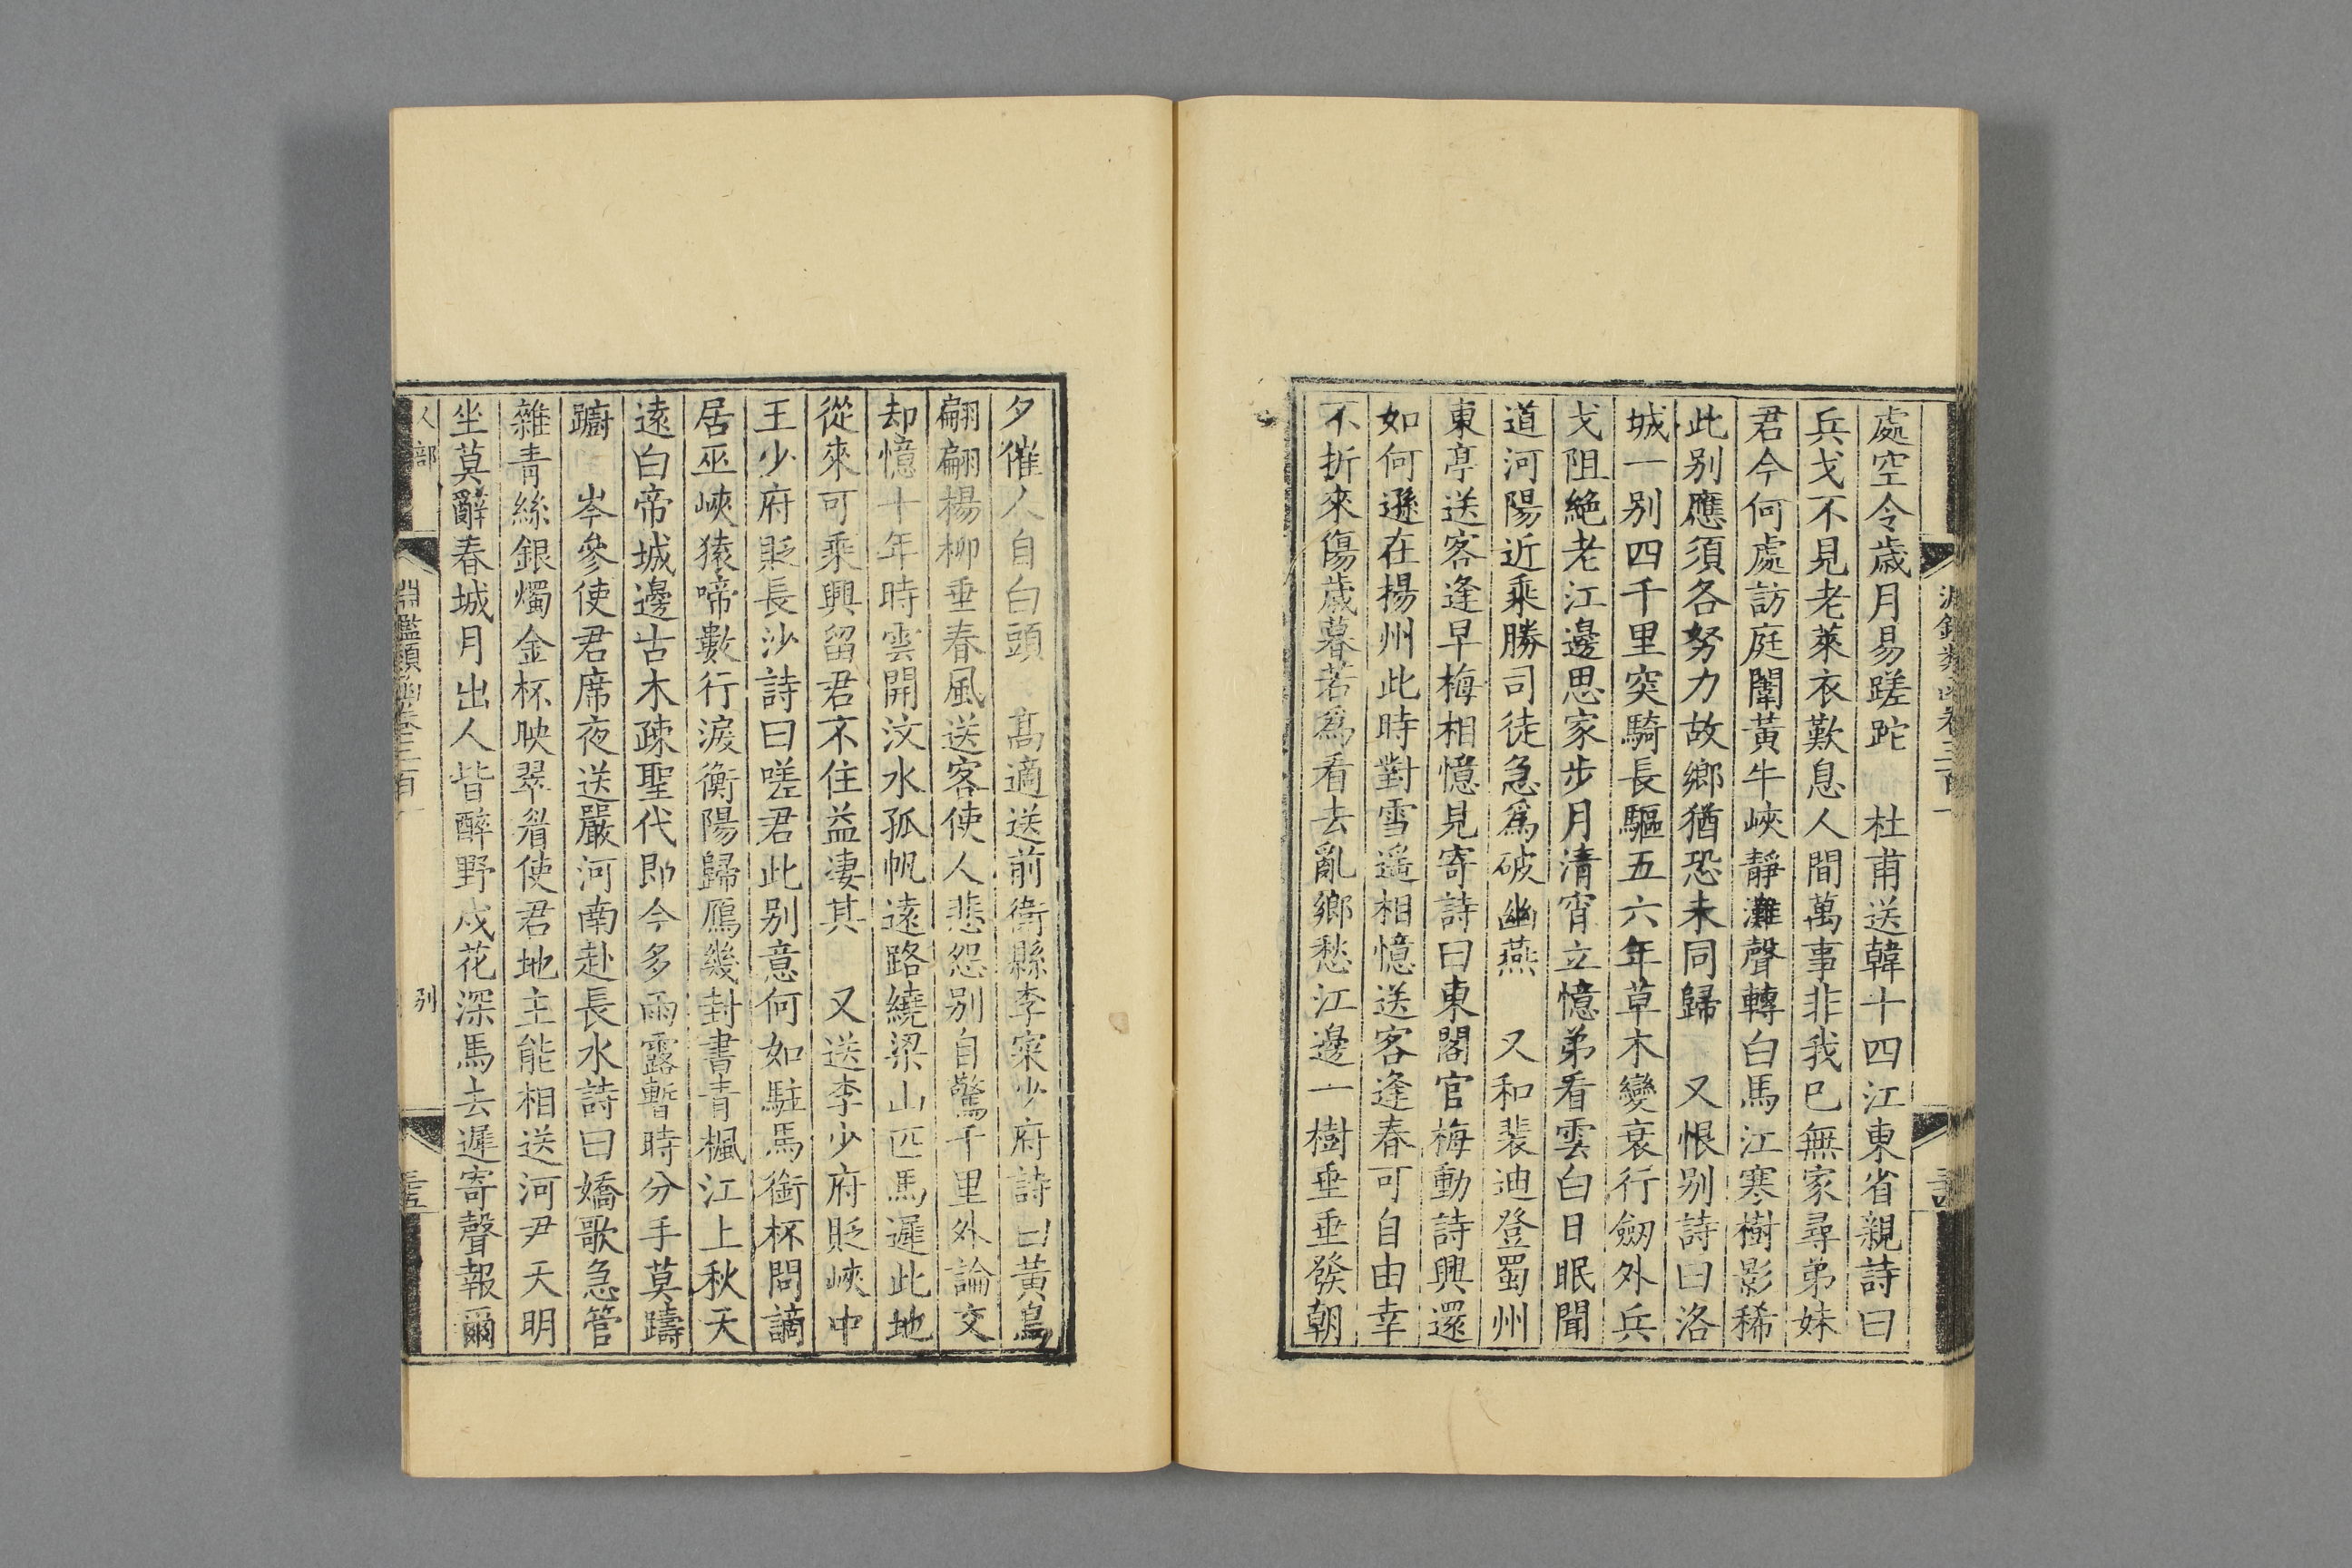 處空令歲月易蹉跎　杜甫送韓十四江東省親詩曰
兵戈不見老萊衣歎息人間萬事非我已無家尋弟妹
君今何處訪庭闈黃牛峽靜灘聲轉白馬江寒樹影稀
此別應須各努力故鄉猶恐未同歸　又恨別詩曰洛
城一別四千里突騎長驅五六年草木變衰行劒外兵
戈阻絶老江邊思家步月清宵立憶弟看雲白日眠聞
道河陽近乘勝司徒急爲破幽燕　又和裴迪登蜀州
東亭送客逢早梅相憶見寄詩曰東閣官梅動詩興還
如何遜在揚州此時對雪遥相憶送客逢春可自由幸
不折來傷歲暮若爲看去亂鄉愁江邊一樹垂垂發朝
夕催人自白頭　高適送前衛縣李寀少府詩曰黃鳥
翩翩楊柳垂春風送客使人悲怨別自驚千里外論交
却憶十年時雲開汶水孤帆遠路繞梁山匹馬遲此地
從來可乘興留君不住益凄其　又送李少府貶峽中
王少府貶長沙詩曰嗟君此別意何如駐馬銜杯問謫
居巫峽猿啼數行淚衡陽歸鴈幾封書青楓江上秋天
遠白帝城邊古木疎聖代即今多雨露暫時分手莫躊
躕　岑參使君席夜送嚴河南赴長水詩曰嬌歌急管
雜青絲銀燭金杯映翠眉使君地主能相送河尹天明
坐莫辭春城月出人皆醉野戍花深馬去遲寄聲報爾
人部
淵鑑類函卷三百一
別